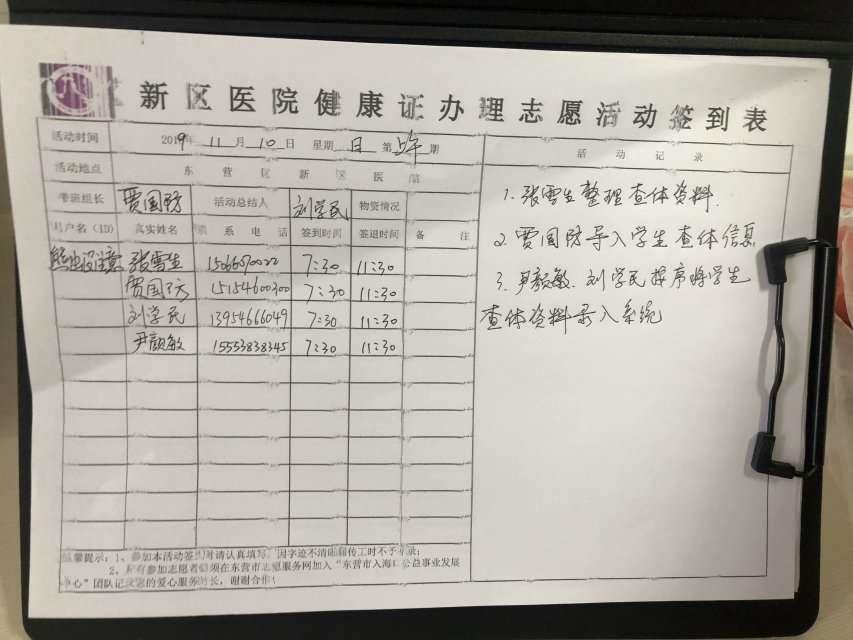 新区医院健康证办理志愿活动签到表
活动时间 2019年 11月 10日 星期 日 第 上午 期
活动记录
活动地点 东营区新区医院
带班组长 贾国防 活动总结人 刘学民 物资情况
用户名(ID) 真实姓名 联系电话 签到时间 签退时间 备注
张雪生 7:30 11:30
15154600300 7:30 11:30
刘学民 13954666049 7:30 11:30
尹颜敏 15553838345 7:30 11:30
1.张雪生整理查体资料
2.贾国防导入学生查体信息
3.尹颜敏、刘学民按序将学生
查体资料录入系统
温馨提示:1、参加本活动签到时请认真填写,因字迹不清晰工时不予录;
2、所有参加志愿者必须在东营市志愿服务网加入“东营市入海口公益事业发展
中心”团队记录您的爱心服务时长,谢谢合作!